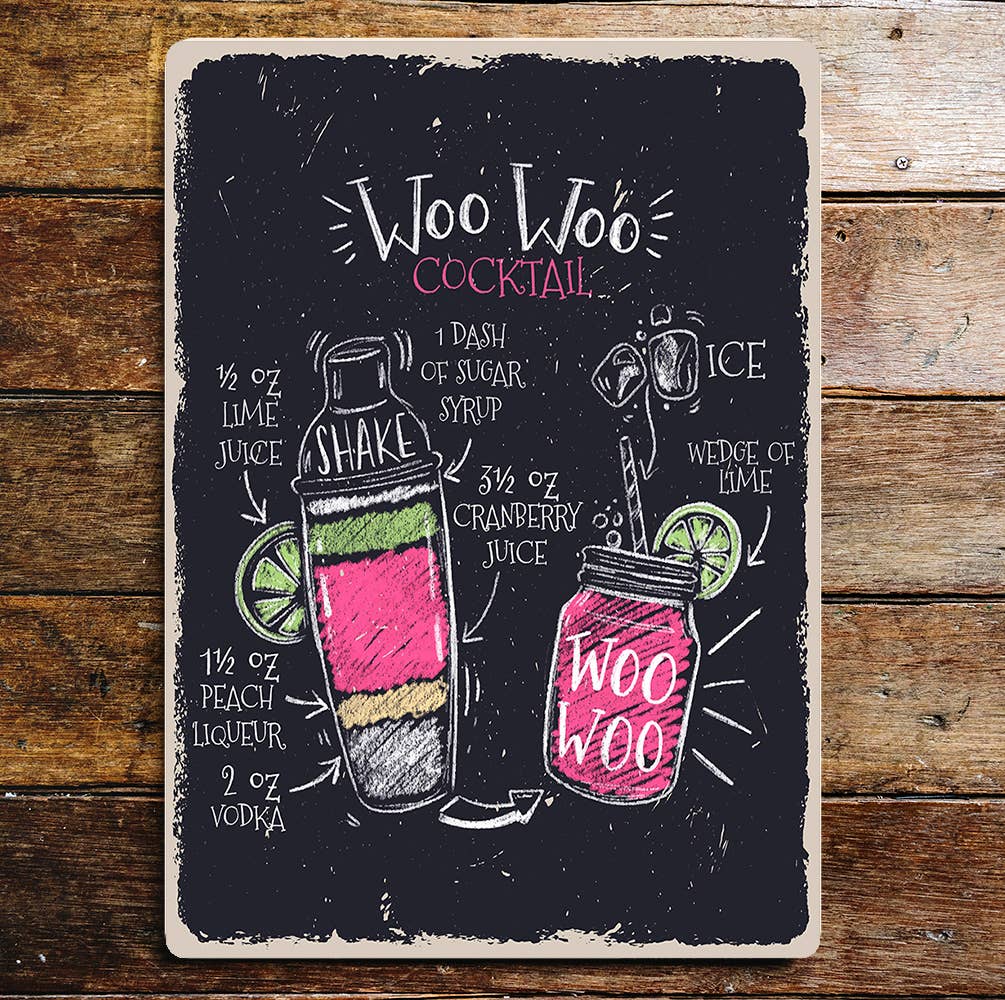 Woo Woo
COCKTAIL
1 DASH
OF SUGAR
SYRUP
ICE
½ OZ
LIME
JUICE
SHAKE
WEDGE OF
LIME
3½ OZ
CRANBERRY
JUICE
1½ OZ
PEACH
LIQUEUR
2 OZ
VODKA
WOO
WOO